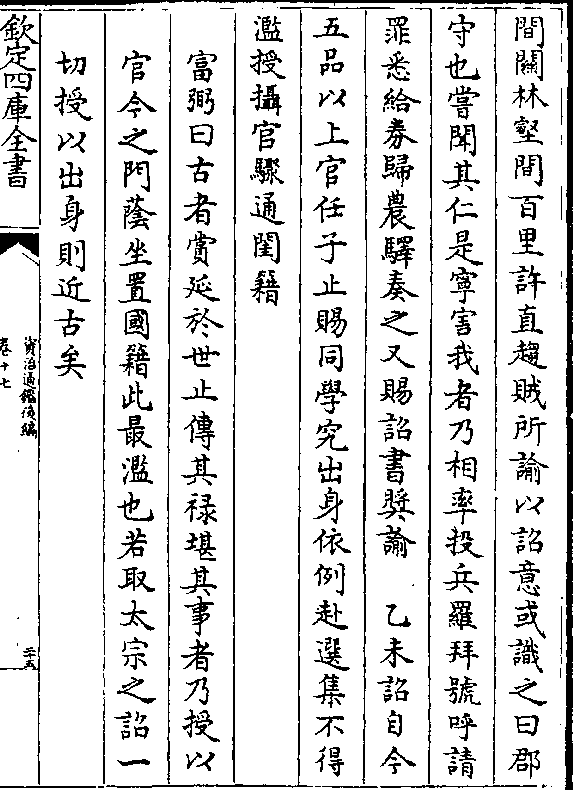 間關林壑間百里許直趨賊所諭以詔意或識之曰郡
守也嘗聞其仁是寧害我者乃相率投兵羅拜號呼請
罪悉給劵歸農驛奏之又賜詔書奬諭　乙未詔自今
五品以上官任子止賜同學究出身依例赴選集不得
濫授攝官驟通閨籍
富弼曰古者賞延於世止傳其禄堪其事者乃授以
官今之門蔭坐置國籍此最濫也若取太宗之詔一
切授以出身則近古矣
欽定四庫全書
資治通鑑後編
卷十七
二十五